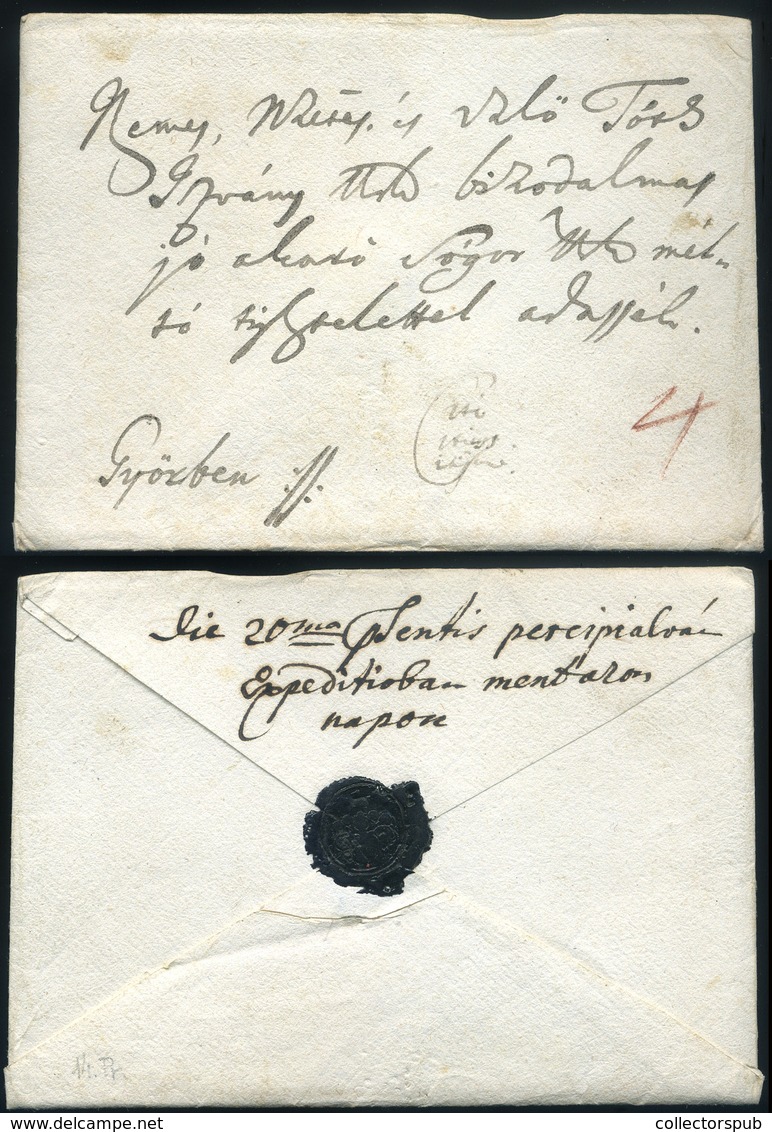 Nemes, Nzetes. és Vzlő Tóth
Istvány Urk bizodalmas
jó akaró Sógor Urk mél-
tó tisztelettel adassék.
4
Győrben
Die 20ma psentis percipialván
Expeditioban mentáron
napon
delcampe.net
collectorspub